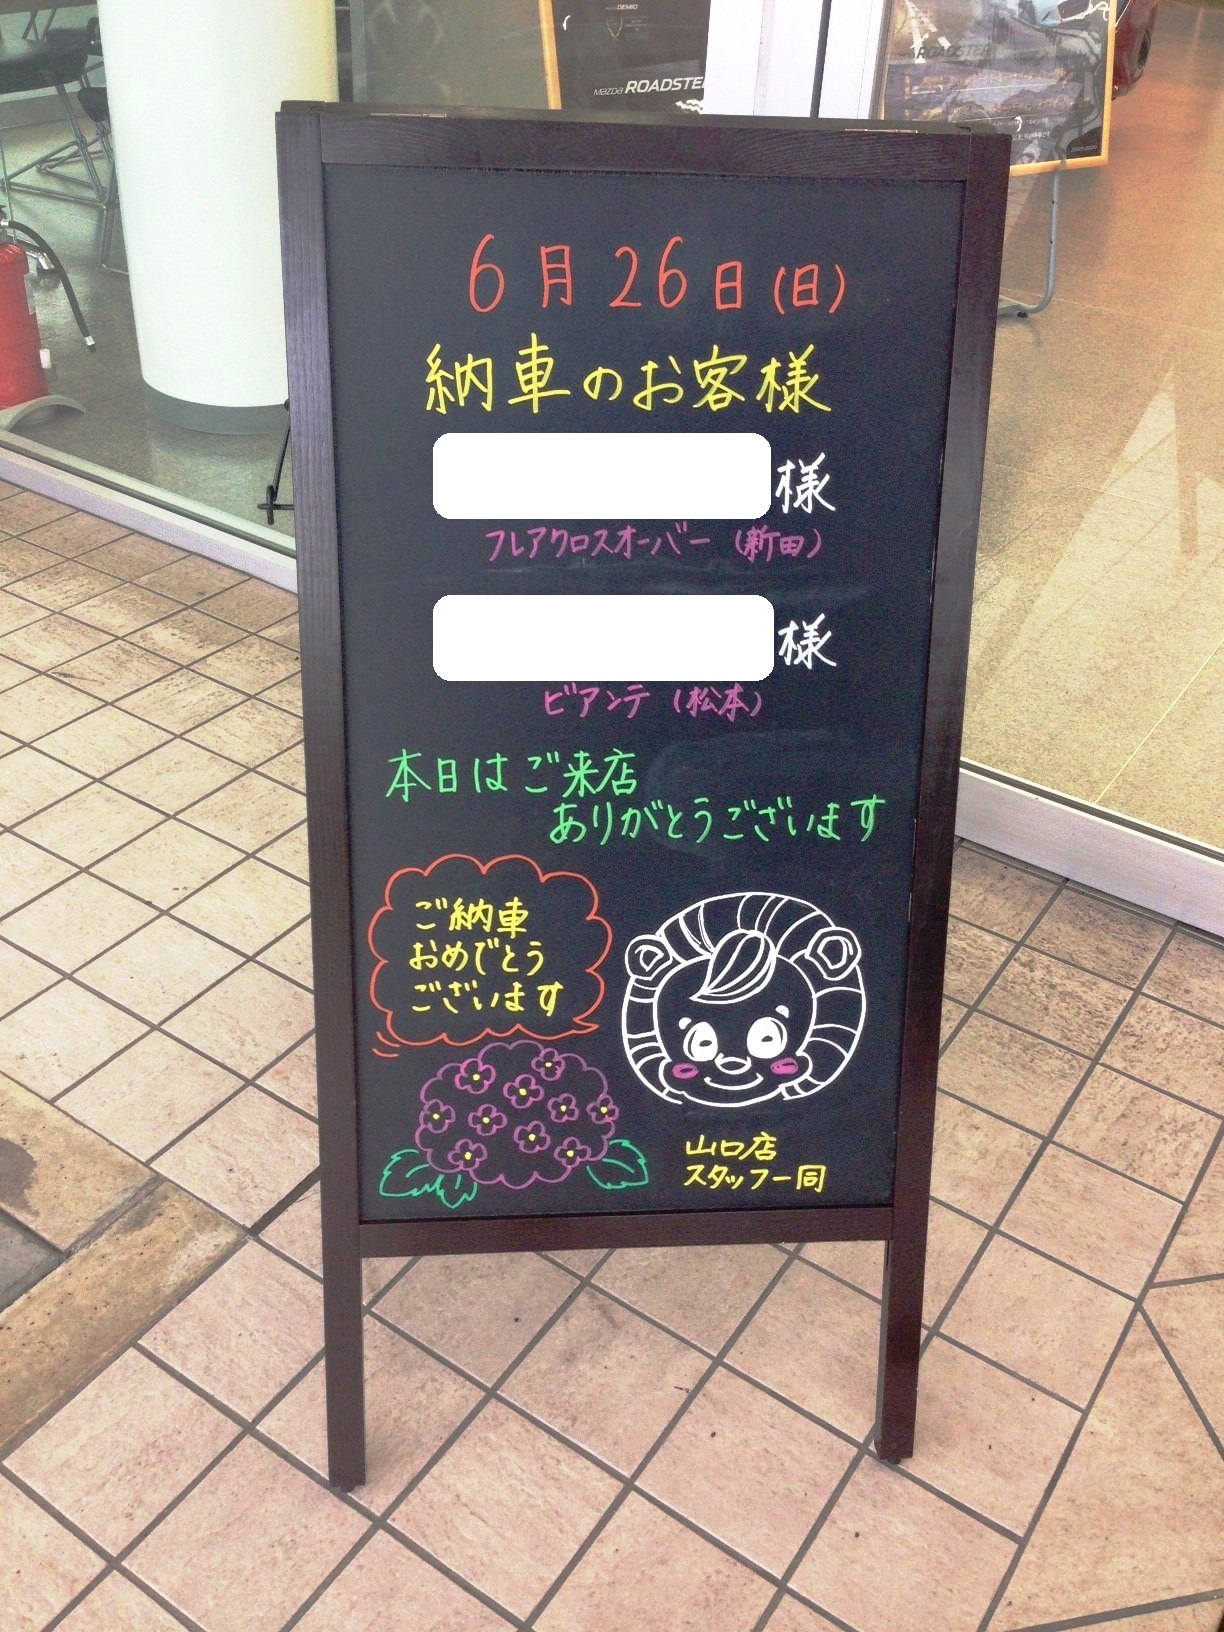 DEMIO
mazda ROADSTER
ROADSTER
6月26日(日)
納車のお客様
様
フレアクロスオーバー(新田)
様
ビアンテ(松本)
本日はご来店
ありがとうございます
ご納車
おめでとう
ございます
山口店
スタッフ一同